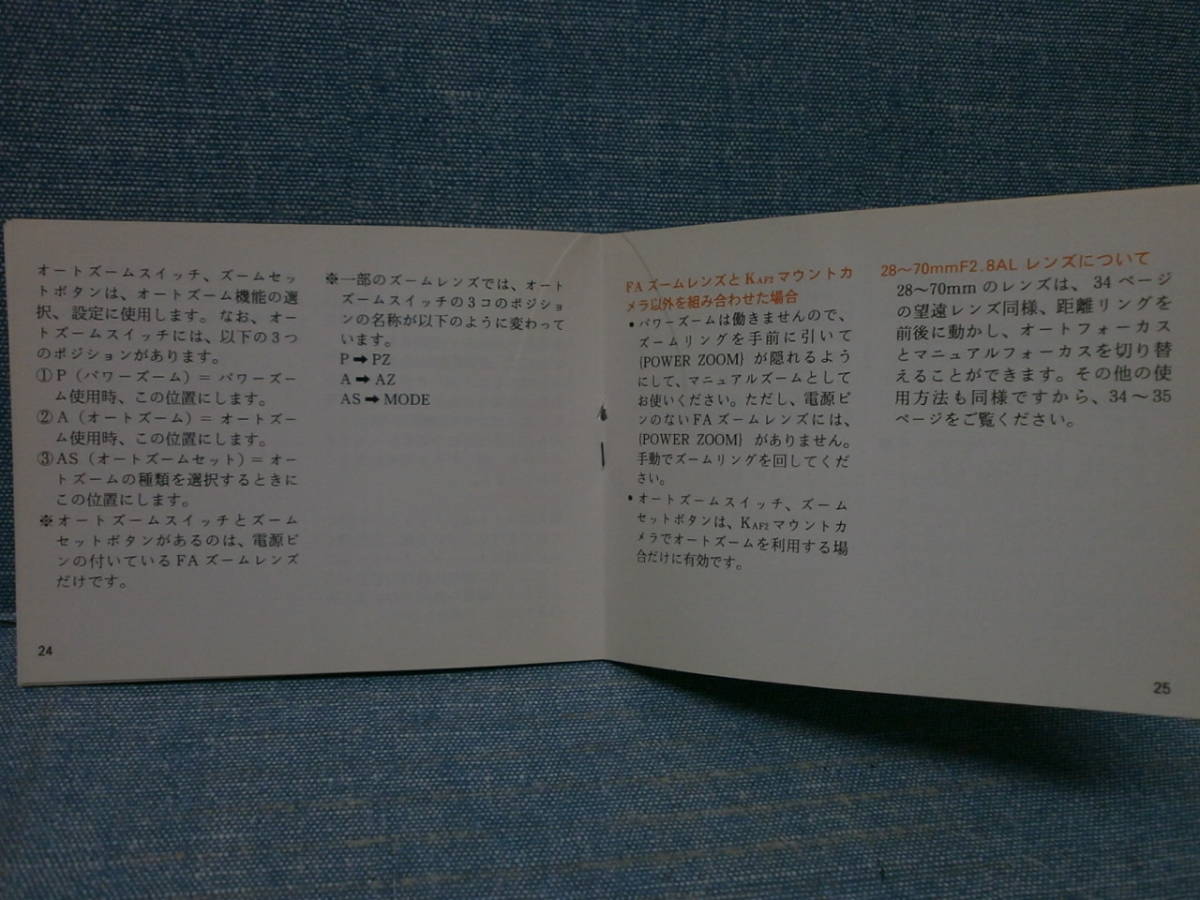 オートズームスイッチ、ズームセッ
トボタンは、オートズーム機能の選
択、設定に使用します。なお、オー
トズームスイッチには、以下の3つ
のポジションがあります。
①P（パワーズーム）＝パワーズー
ム使用時、この位置にします。
②A（オートズーム）＝オートズー
ム使用時、この位置にします。
③AS（オートズームセット）＝オー
トズームの種類を選択するときに
この位置にします。
※オートズームスイッチとズーム
セットボタンがあるのは、電源ピ
ンの付いているFAズームレンズ
だけです。
24
※一部のズームレンズでは、オート
ズームスイッチの3コのポジショ
ンの名称が以下のように変わって
います。
P➡PZ
A➡AZ
AS➡MODE
FAズームレンズとKAF2マウントカ
メラ以外を組み合わせた場合
•パワーズームは働きませんので、
ズームリングを手前に引いて
{POWER ZOOM}が隠れるよう
にして、マニュアルズームとして
お使いください。ただし、電源ピ
ンのないFAズームレンズには、
{POWER ZOOM}がありません。
手動でズームリングを回してくだ
さい。
•オートズームスイッチ、ズーム
セットボタンは、KAF2マウントカ
メラでオートズームを利用する場
合だけに有効です。
28～70mmF2.8AL レンズについて
28～70mmのレンズは、34ページ
の望遠レンズ同様、距離リングを
前後に動かし、オートフォーカス
とマニュアルフォーカスを切り替
えることができます。その他の使
用方法も同様ですから、34～35
ページをご覧ください。
25